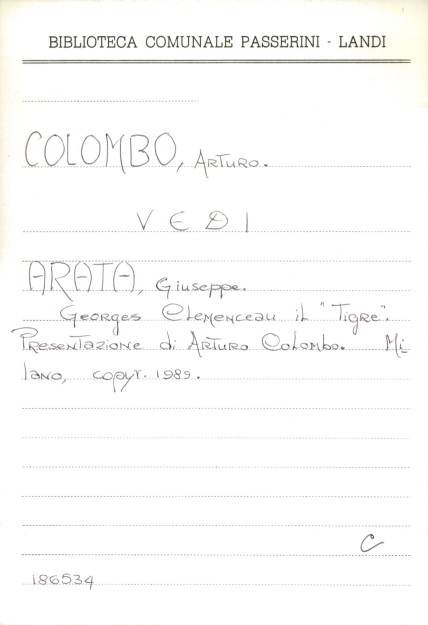 BIBLIOTECA COMUNALE PASSERINI - LANDI
COLOMBO, Arturo.
VEDI
ARATA, Giuseppe.
Georges Clemenceau il "Tigre".
Presentazione di Arturo Colombo. Mi-
lano, copyr. 1989.
C
186534